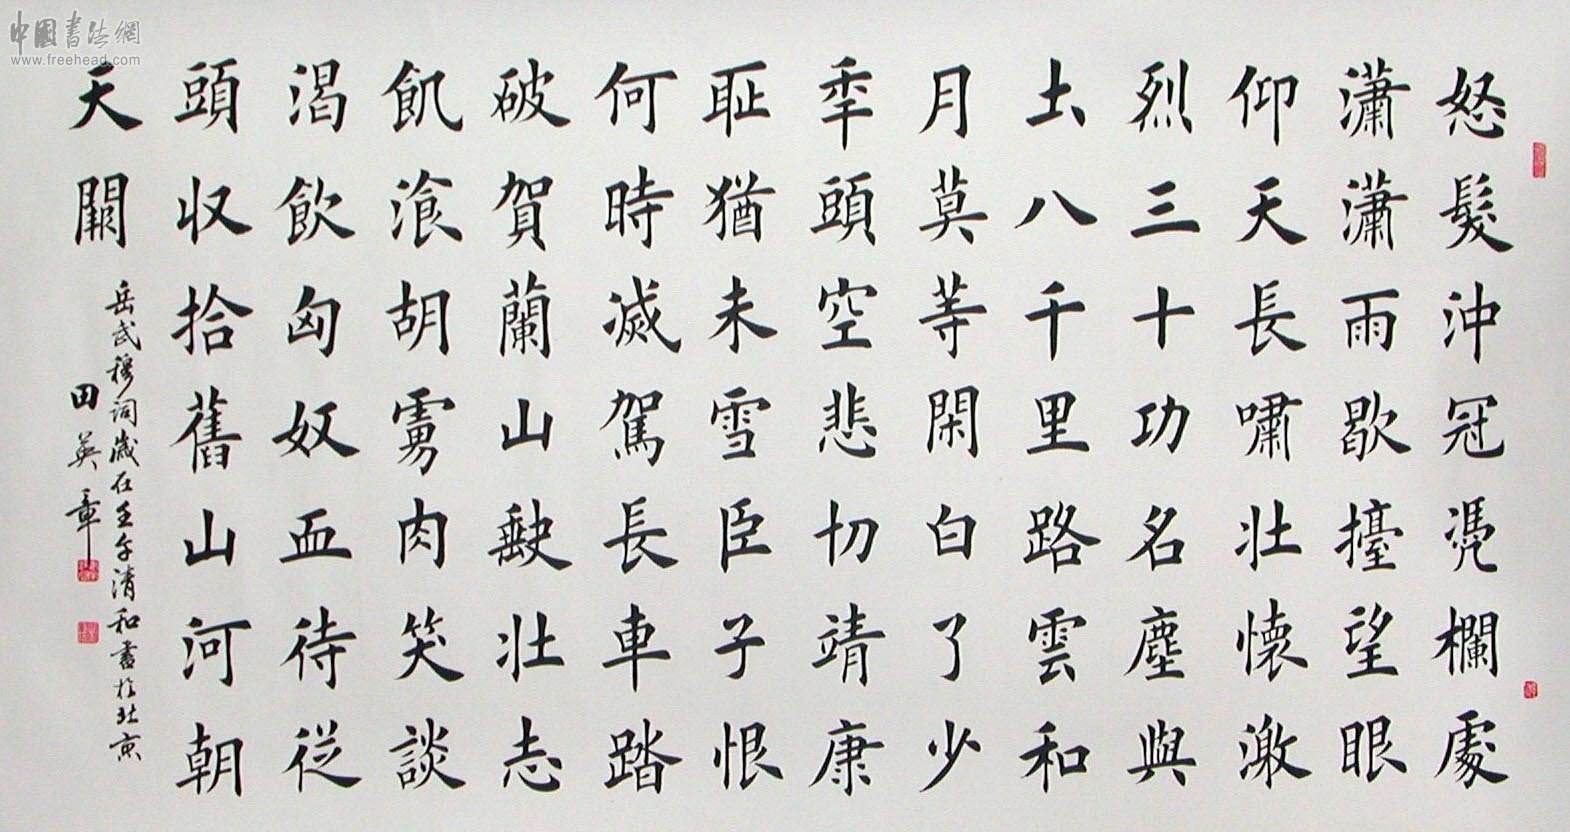 中國書法網
www.freehead.com
怒髮沖冠憑欄處
瀟瀟雨歇擡望眼
仰天長嘯壯懷激
烈三十功名塵與
土八千里路雲和
月莫等閑白了少
年頭空悲切靖康
恥猶未雪臣子恨
何時滅駕長車踏
破賀蘭山缺壯志
飢飡胡虜肉笑談
渴飲匈奴血待從
頭收拾舊山河朝
天闕
岳武穆詞歲在壬午清和書於北京
田英章